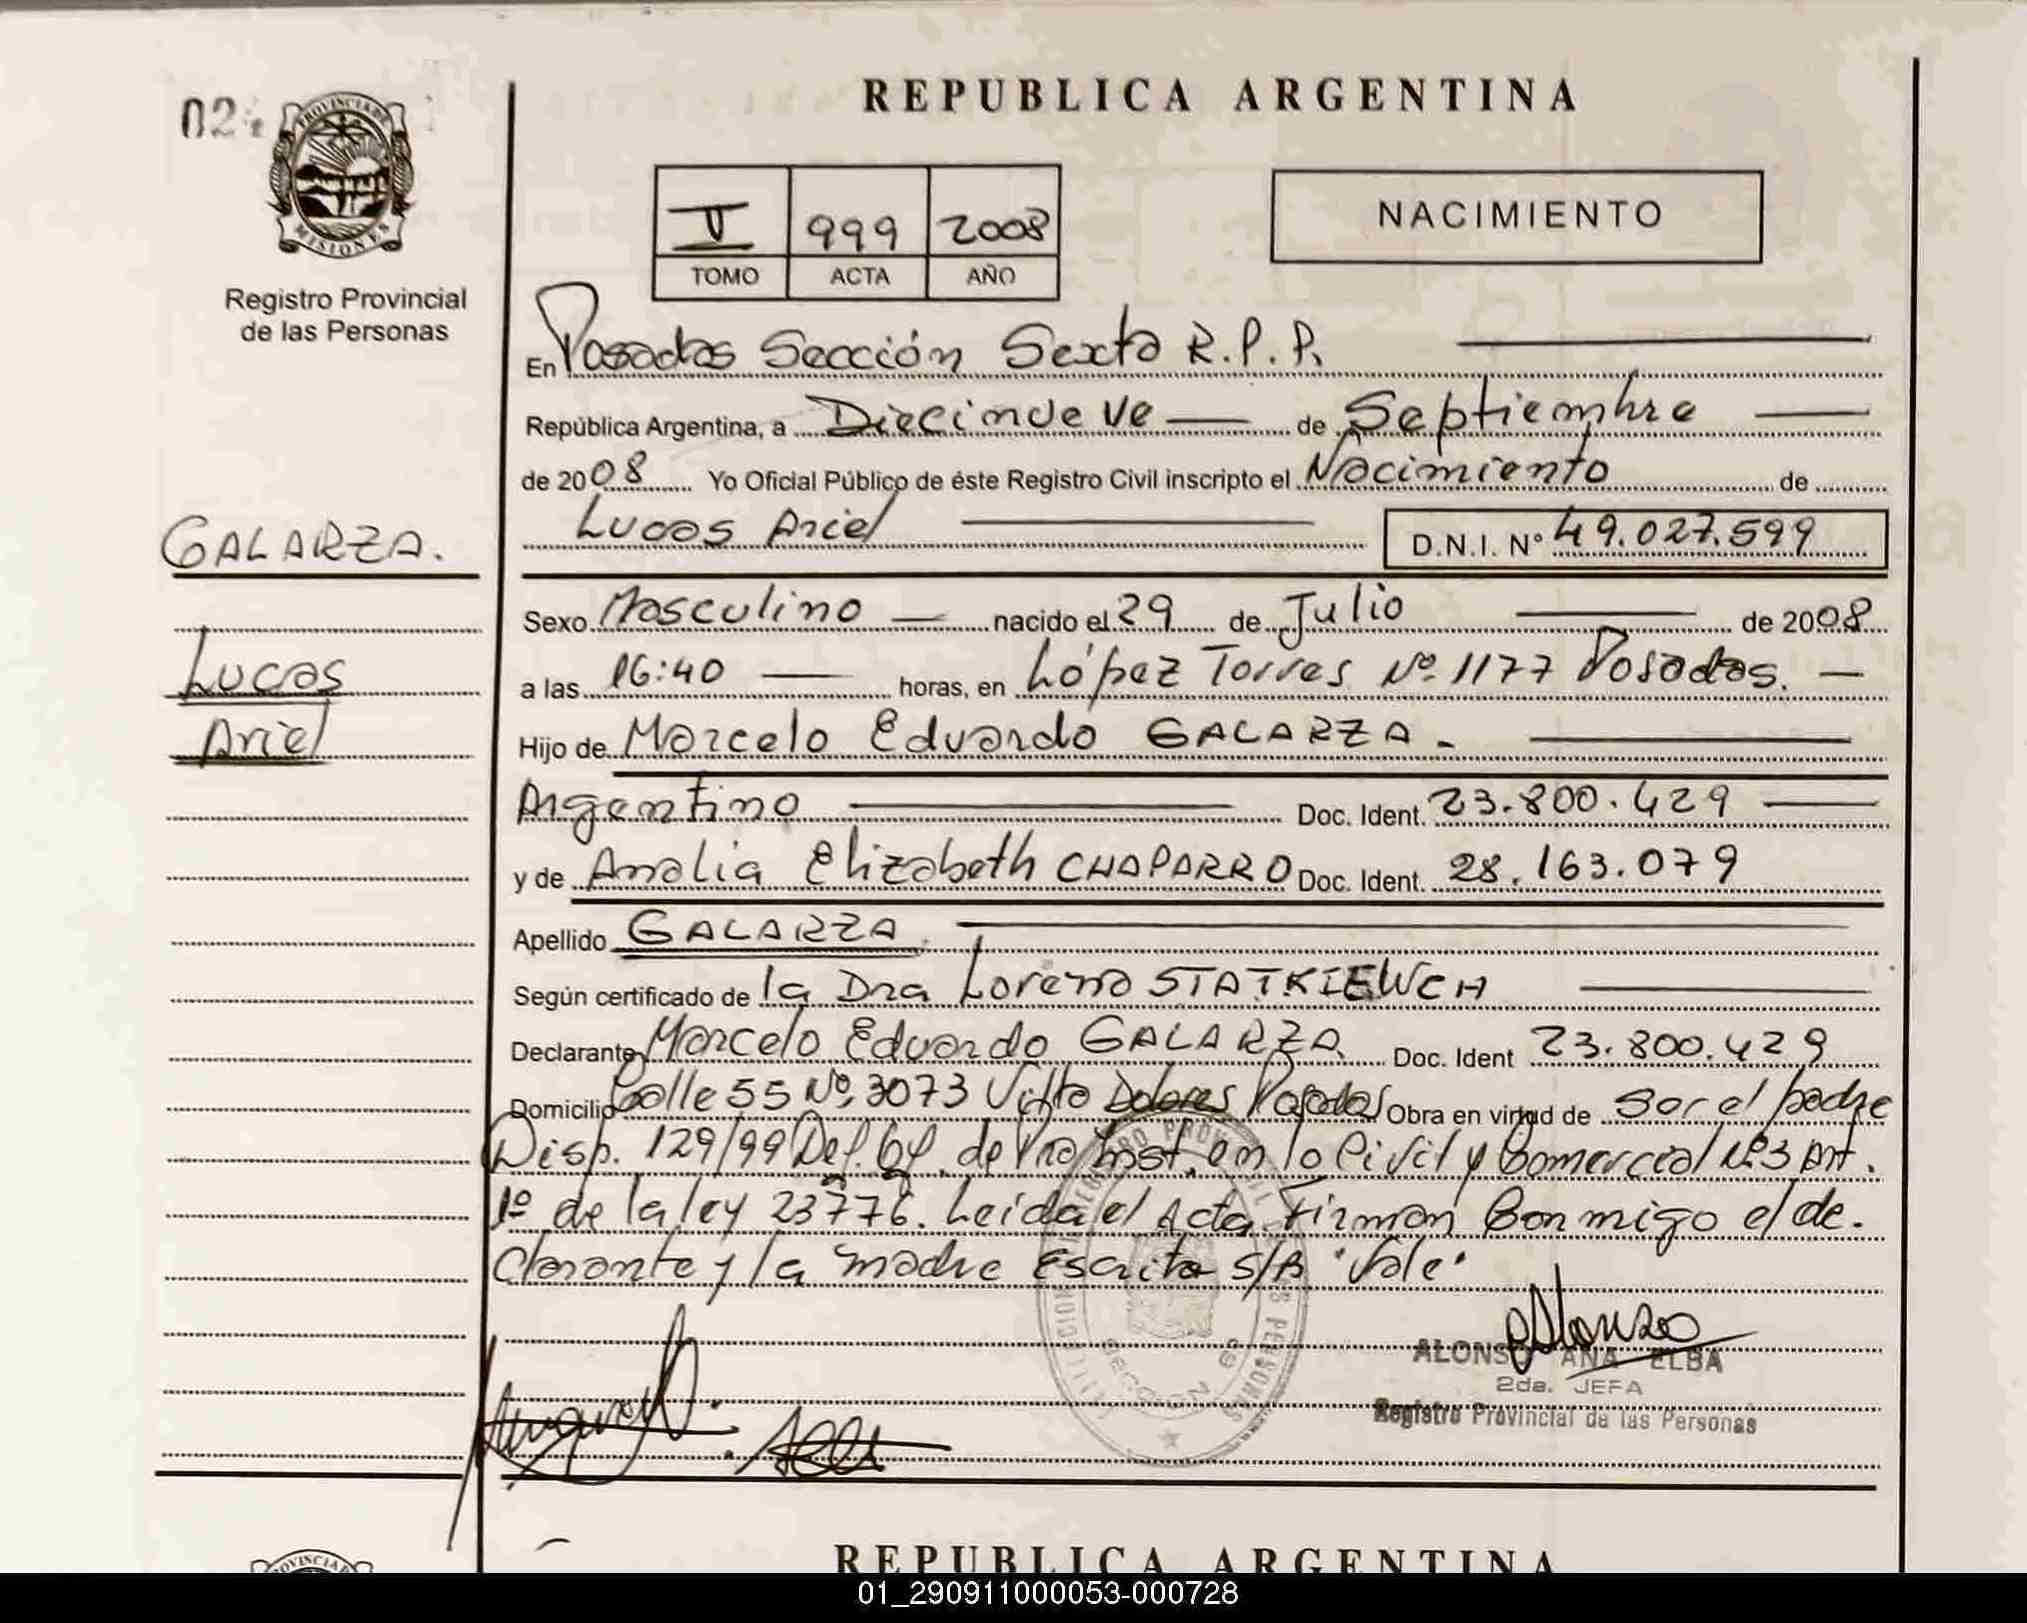 REPUBLICA ARGENTINA
02
PROVINCIA DE
MISIONES
Registro Provincial
de las Personas
V 999 2008
TOMO ACTA AÑO
NACIMIENTO
En Posadas Sección Sexta R.P.P.
República Argentina, a Diecinueve de Septiembre
de 2008 Yo Oficial Público de éste Registro Civil inscripto el Nacimiento de
Lucas Ariel D.N.I. Nº 49.027.599
GALARZA.
Lucas
Ariel
Sexo Masculino nacido el 29 de Julio de 2008
a las 16:40 horas, en López Torres Nº 1177 Posadas.
Hijo de Marcelo Eduardo GALARZA.
Argentino Doc. Ident. 23.800.429
y de Analia Elizabeth CHAPARRO Doc. Ident. 28.163.079
Apellido GALARZA
Según certificado de la Dra Lorena STATKIEWCH
Declarante Marcelo Eduardo GALARZA Doc. Ident 23.800.429
Domicilio Calle 55 Nº 3073 Villa Dolores Posadas Obra en virtud de Ser el padre
Disp. 129/99 Def. Of. de Pra Inst. en lo Civil y Comercial Nº3 Art.
1º de la ley 23776. Leida el Acta Firman Conmigo el de-
clarante y la madre Escrito S/B "Vale"
ALONSO ANA ELBA
2da. JEFA
Registro Provincial de las Personas
REPUBLICA ARGENTINA
01_290911000053-000728